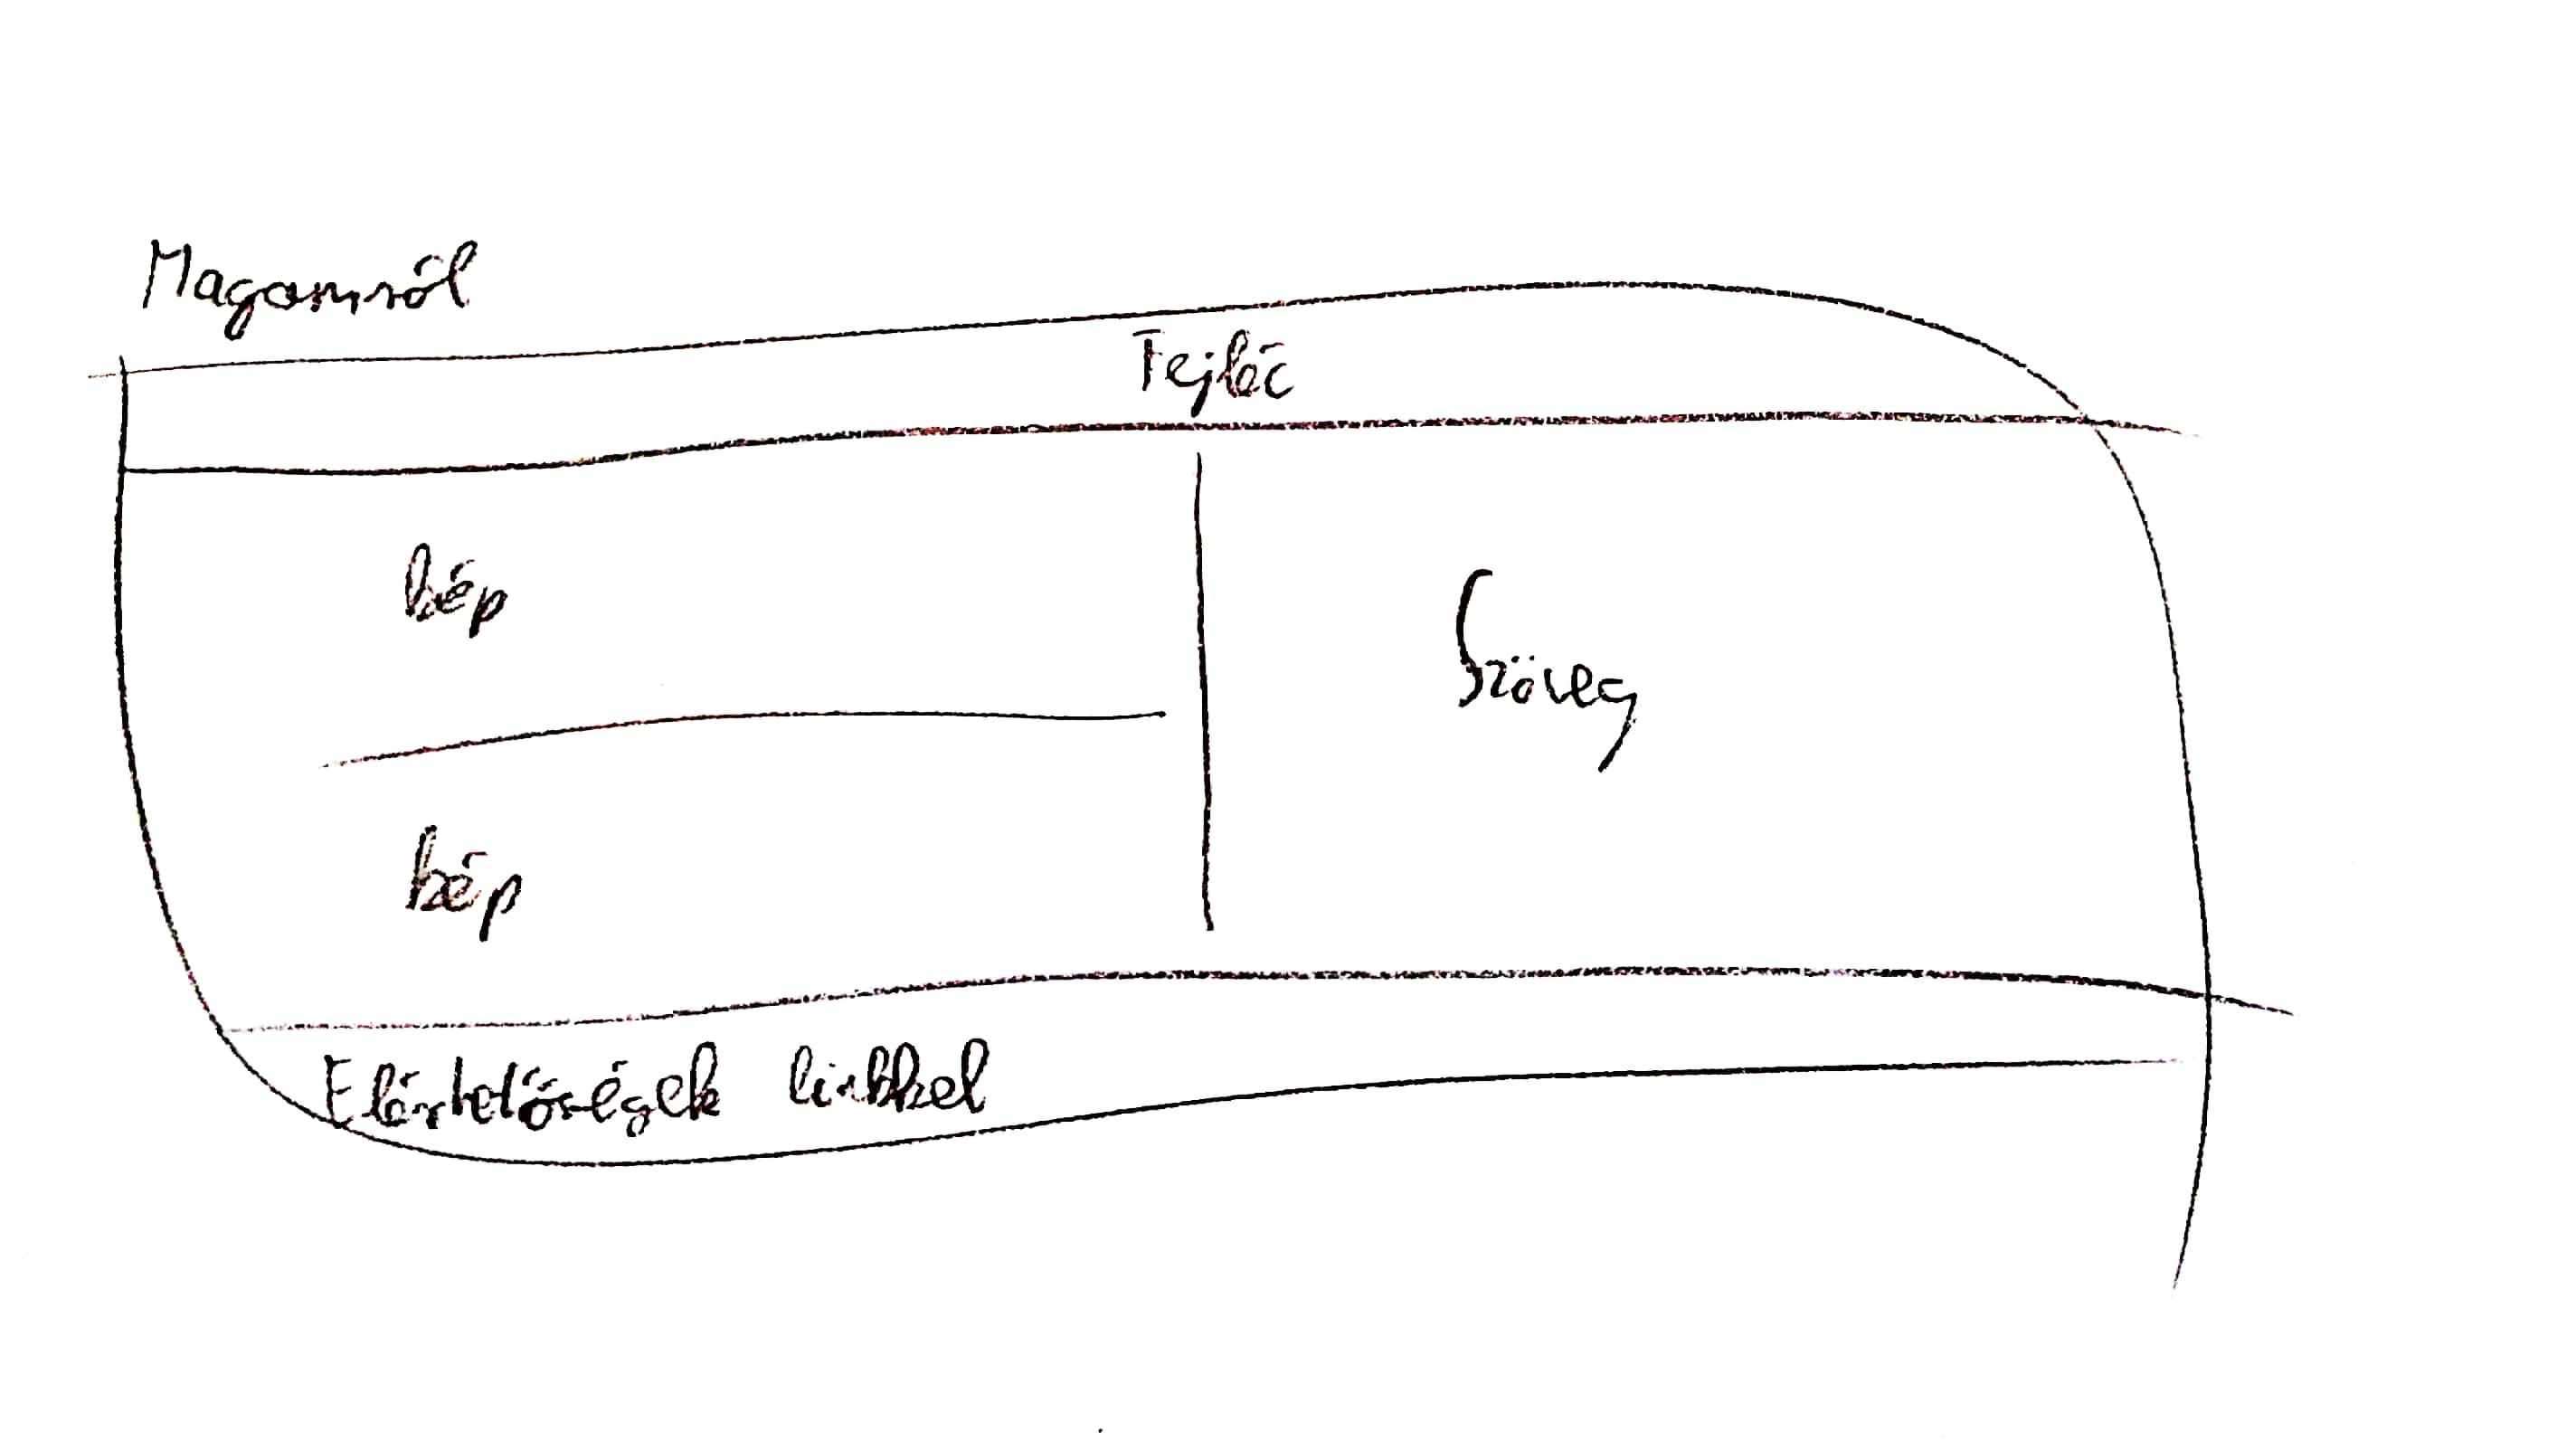 Magamról
Fejléc
kép
Szöveg
kép
Elérhetőségek linkkel